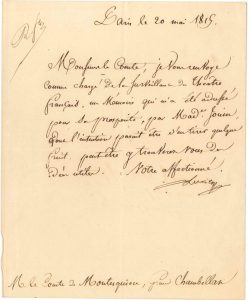 Paris le 20 mai 1815.
Monsieur le Comte, je vous envoye
comme chargé de la surveillance du théâtre
français, un Mémoire qui m'a été adressé
pour sa prospérité, par Mad.e
dont l'intention paraît être d'en tirer quelque
fruit. peut-être y trouverez vous des
idées utiles. Votre affectionné.
M. le Comte de Montesquiou, grand Chambellan